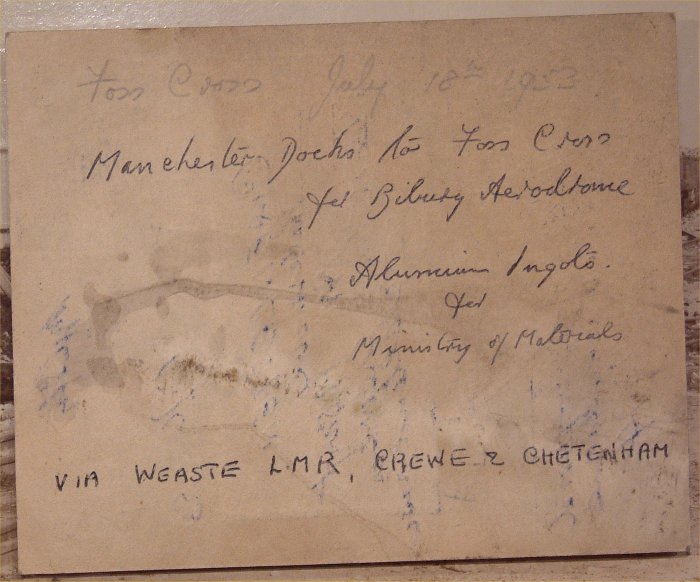 Foss Cross July 18th 1953
Manchester Docks to Foss Cross
for Bibury Aerodrome
Aluminium Ingots.
for
Ministry of Materials
VIA WEASTE LMR, CREWE & CHETENHAM